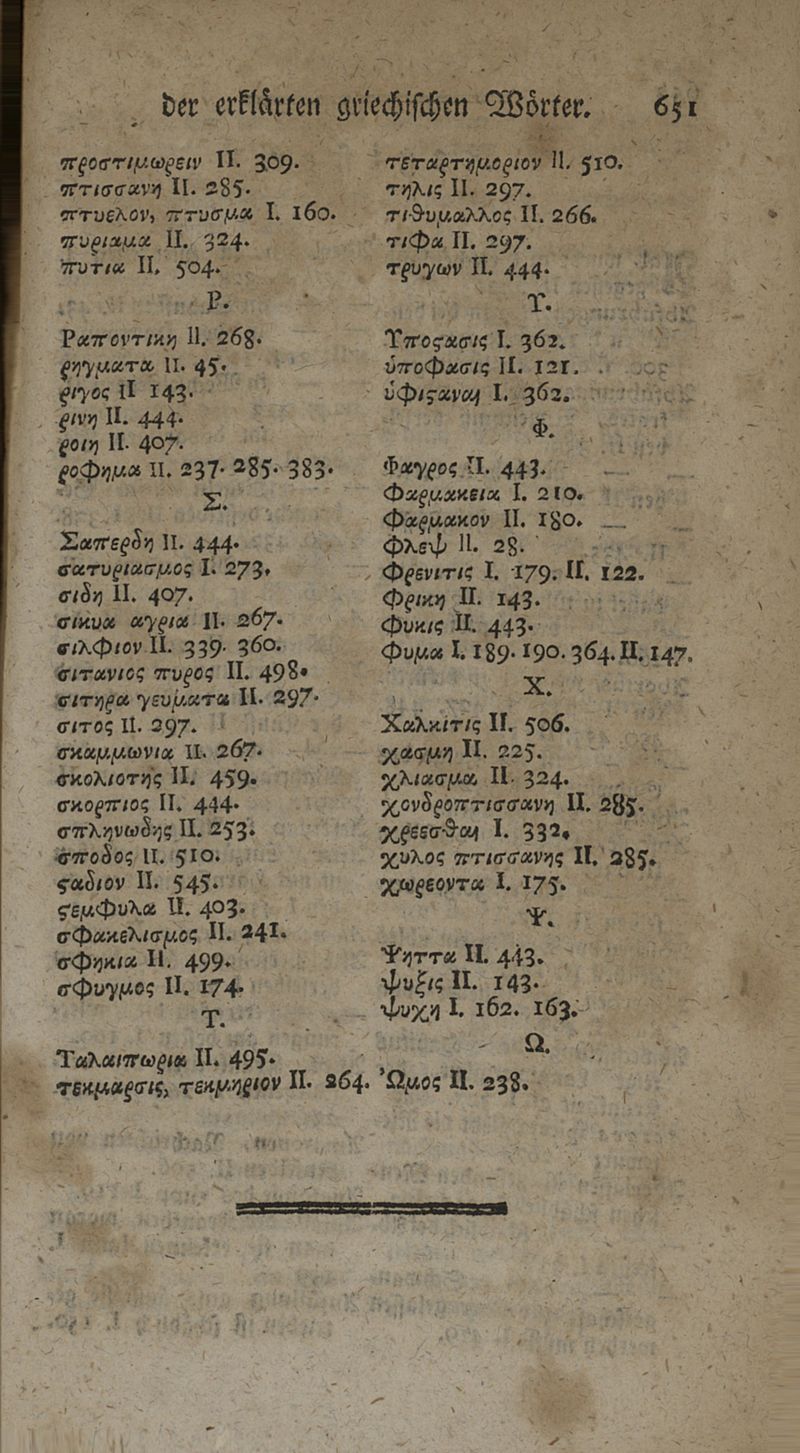 der erklårten griechischen Wörter. 651
προστιμωρειν II. 309.
πτισσανη II. 285.
πτυελον, πτυσμα I. 160.
πυριαμα II. 324.
πυτια II. 504.
Ρ.
Ραποντικη II. 268.
ρηγματα II. 45.
ριγος II 143.
ρινη II. 444.
ροιη II. 407.
ροφημα II. 237. 285. 383.
Σ.
Σαπερδη II. 444.
σατυριασμος I. 273.
σιδη II. 407.
σικυα αγρια II. 267.
σιλφιον II. 339. 360.
σιτανιος πυρος II. 498.
σιτηρα γευματα II. 297.
σιτος II. 297.
σκαμμωνια II. 267.
σκολιοτης II. 459.
σκορπιος II. 444.
σπληνωδης II. 253.
σποδος II. 510.
ϛαδιον II. 545.
ϛεμφυλα II. 403.
σφακελισμος II. 241.
σφηκια II. 499.
σφυγμος II. 174.
Τ.
Ταλαιπωρια II. 495.
τεκμαρσις, τεκμηριον II. 264.
τεταρτημοριον II. 510.
τηλις II. 297.
τιθυμαλλος II. 266.
τιφα II. 297.
τρυγων II. 444.
Υ.
Υποϛασις I. 362.
ὑποφασις II. 121.
ὑφιϛαναι I. 362.
Φ.
Φαγρος II. 443.
Φαρμακεια I. 210.
Φαρμακον II. 180.
Φλεψ II. 28.
Φρενιτις I. 179. II. 122.
Φρικη II. 143.
Φυκις II. 443.
Φυμα I. 189. 190. 364. II. 147.
Χ.
Χαλκιτις II. 506.
χασμη II. 225.
χλιασμα II. 324.
χονδροπτισσανη II. 285.
χρεεσθαι I. 332.
χυλος πτισσανης II. 285.
χωρεοντα I. 175.
Ψ.
Ψηττα II. 443.
ψυξις II. 143.
ψυχη I. 162. 163.
Ω.
Ὠμος II. 238.